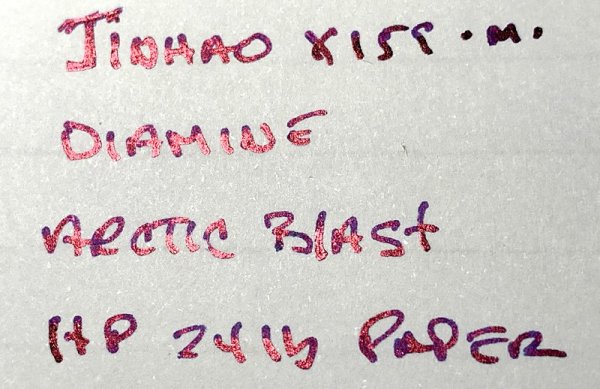 JINHAO X159 · M ·
DIAMINE
ARCTIC BLAST
HP 24 lb PAPER